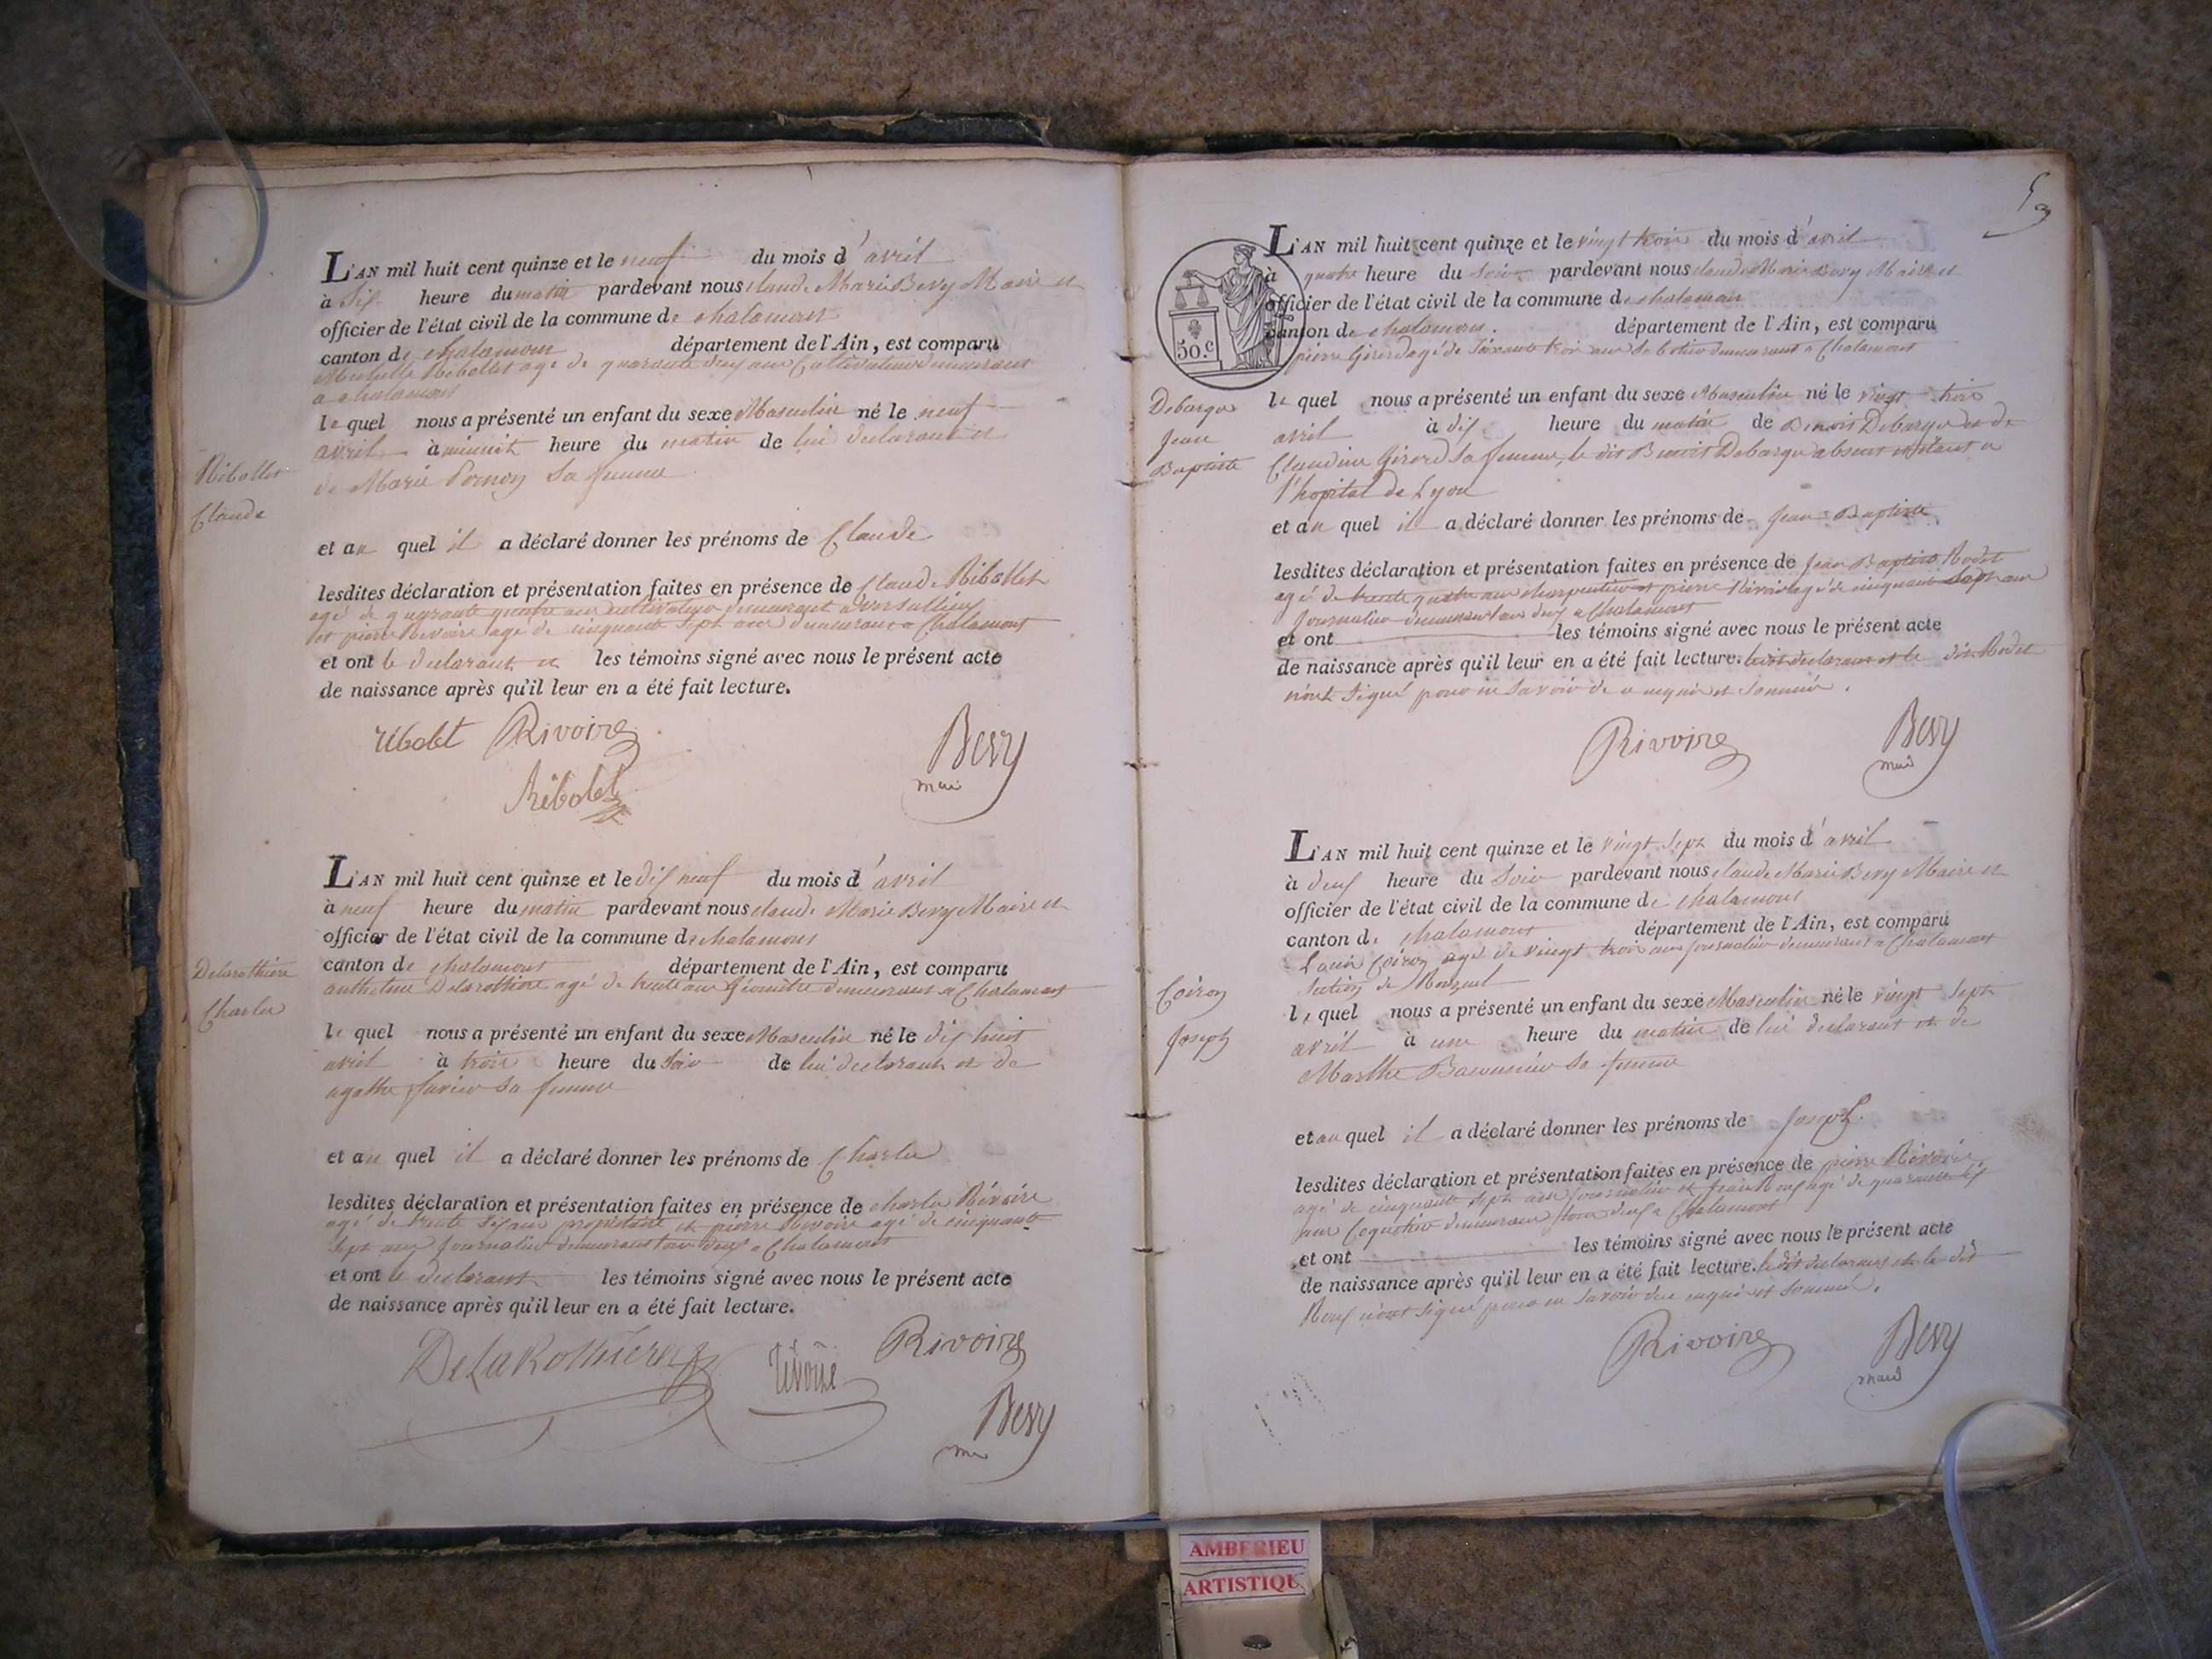 L'AN mil huit cent quinze et le neuf du mois d'avril
à dix heure du matin pardevant nous claude Marie Bevy Maire et
officier de l'état civil de la commune de chalamont
canton de chalamont département de l'Ain, est comparu
Ribollet agé de quarante deux ans Cultivateur demeurant
a chalamont
le quel nous a présenté un enfant du sexe Masculin né le neuf
avril à minuit heure du matin de lui declarant et
de Marie sa femme
Ribollet
Claude
et au quel il a déclaré donner les prénoms de Claude
lesdites déclaration et présentation faites en présence de Claude Ribollet
agé de quarante quatre ans cultivateur demeurant a versailleux
et pierre Rivoire agé de cinquante sept ans demeurant a Chalamont
et ont le declarant et les témoins signé avec nous le présent acte
de naissance après qu'il leur en a été fait lecture.
Ribolet Rivoire
Bevy
Ribolet
maire
L'AN mil huit cent quinze et le dix neuf du mois d'avril
à neuf heure du matin pardevant nous claude Marie Bevy Maire et
officier de l'état civil de la commune de chalamont
Delarothiere
Charles
canton de chalamont département de l'Ain, est comparu
anthelme Delarothiere agé de trente ans Géomètre demeurant a Chalamont
le quel nous a présenté un enfant du sexe Masculin né le dix huit
avril à trois heure du soir de lui declarant et de
agathe Savier sa femme
et au quel il a déclaré donner les prénoms de Charles
lesdites déclaration et présentation faites en présence de charles Rivoire
agé de trente six ans propriétaire et pierre Rivoire agé de cinquante
sept ans Journalier demeurant tous deux a Chalamont
et ont le declarant les témoins signé avec nous le présent acte
de naissance après qu'il leur en a été fait lecture.
DelaRothiere Rivoire Rivoire
Bevy
maire
L'AN mil huit cent quinze et le vingt trois du mois d'avril
à quatre heure du soir pardevant nous claude Marie Bevy Maire et
officier de l'état civil de la commune de chalamont
canton de chalamont. département de l'Ain, est comparu
50.c
pierre Girerd agé de soixante trois ans Sabotier demeurant a Chalamont
Debarge
Jean
Baptiste
le quel nous a présenté un enfant du sexe Masculin né le vingt trois
avril à dix heure du matin de Benoit Debarge et de
Claudine Girerd sa femme, le dit Benoit Debarge absent etant a
l'hopital de Lyon
et au quel il a déclaré donner les prénoms de Jean Baptiste
lesdites déclaration et présentation faites en présence de Jean Baptiste Rodet
agé de trente quatre ans charpentier et pierre Rivoire agé de cinquante sept ans
Journalier demeurant tous deux a Chalamont
et ont les témoins signé avec nous le présent acte
de naissance après qu'il leur en a été fait lecture. le dit declarant et le dit Rodet
n'ont signé pour ne savoir de ce enquis et sommé.
Rivoire Bevy
maire
L'AN mil huit cent quinze et le vingt sept du mois d'avril
à deux heure du soir pardevant nous claude Marie Bevy Maire et
officier de l'état civil de la commune de chalamont
canton de chalamont département de l'Ain, est comparu
Louis Coiron agé de vingt trois ans journalier demeurant a Chalamont
section de
Coiron
Joseph
le quel nous a présenté un enfant du sexe Masculin né le vingt sept
avril à une heure du matin de lui declarant et de
Marthe sa femme
et au quel il a déclaré donner les prénoms de Joseph.
lesdites déclaration et présentation faites en présence de pierre Rivoire
agé de cinquante sept ans journalier et agé de quarante six
ans Coquetier demeurant tous deux a Chalamont
et ont les témoins signé avec nous le présent acte
de naissance après qu'il leur en a été fait lecture. le dit declarant et le dit
n'ont signé pour ne savoir de ce enquis et sommé.
Rivoire Bevy
maire
AMBERIEU
ARTISTIQUE